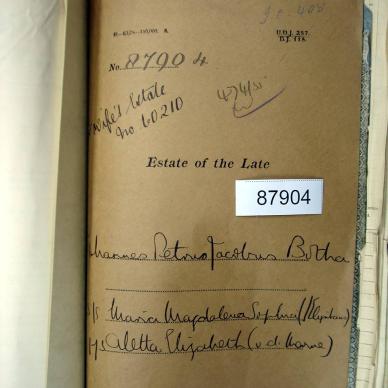 U.D.J. 257.
D.J. 118.
No. 87904
Wife's Estate
No 60210
Estate of the Late
87904
hannes Petrus Jacobus Botha
s/s Maria Magdalena Sophia
Aletta Elizabeth (v. d. Merwe)